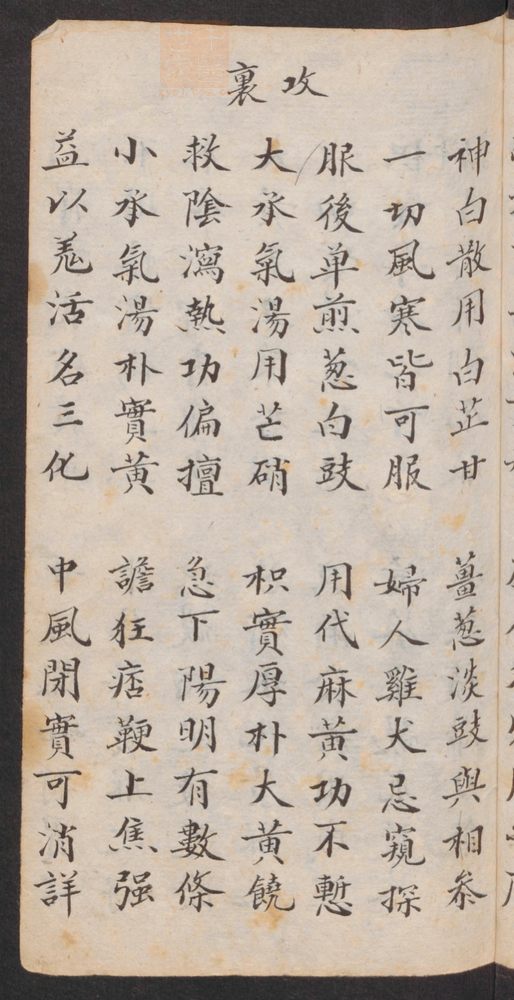 攻裏
神白散用白芷甘 薑葱淡豉與相參
一切風寒皆可服 婦人雞犬忌窺探
服後单煎葱白豉 用代麻黃功不慙
大承氣湯用芒硝 枳實厚朴大黃饒
救陰瀉熱功偏擅 急下陽明有數條
小承氣湯朴實黃 譫狂痞鞕上焦强
益以羗活名三化 中風閉實可消詳